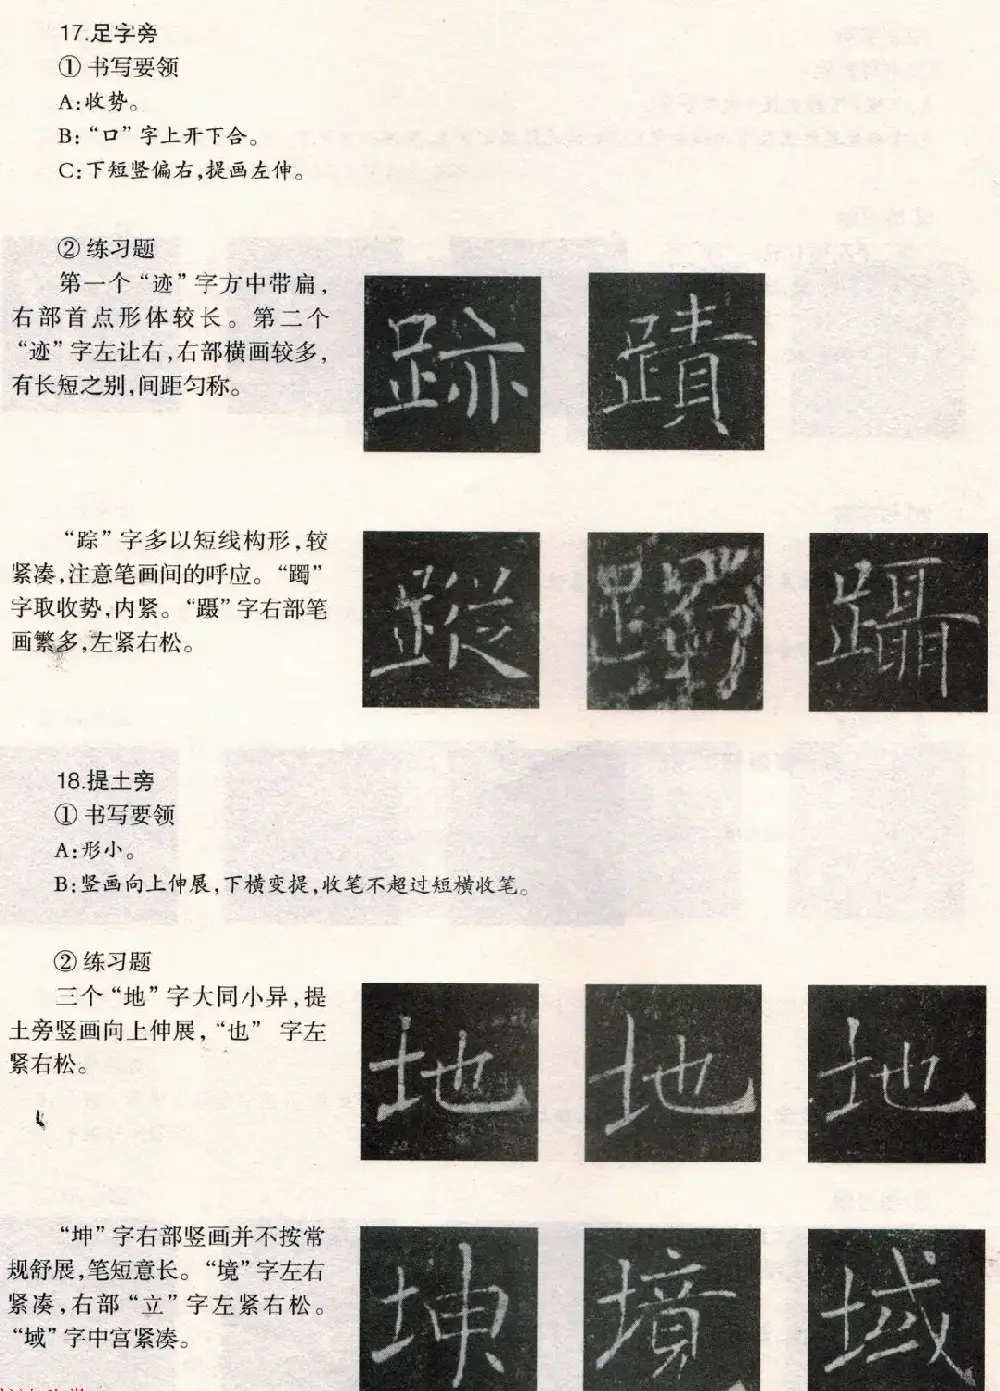 17.足字旁
① 书写要领
A:收势。
B:“口”字上开下合。
C:下短竖偏右,提画左伸。
② 练习题
第一个“迹”字方中带扁,
右部首点形体较长。第二个
“迹”字左让右,右部横画较多,
有长短之别,间距匀称。
跡 蹟
“踪”字多以短线构形,较
紧凑,注意笔画间的呼应。“躅”
字取收势,内紧。“蹑”字右部笔
画繁多,左紧右松。
蹤 躅 躡
18.提土旁
① 书写要领
A:形小。
B:竖画向上伸展,下横变提,收笔不超过短横收笔。
② 练习题
三个“地”字大同小异,提
土旁竖画向上伸展,“也”字左
紧右松。
地 地 地
“坤”字右部竖画并不按常
规舒展,笔短意长。“境”字左右
紧凑,右部“立”字左紧右松。
“域”字中宫紧凑。
坤 境 域